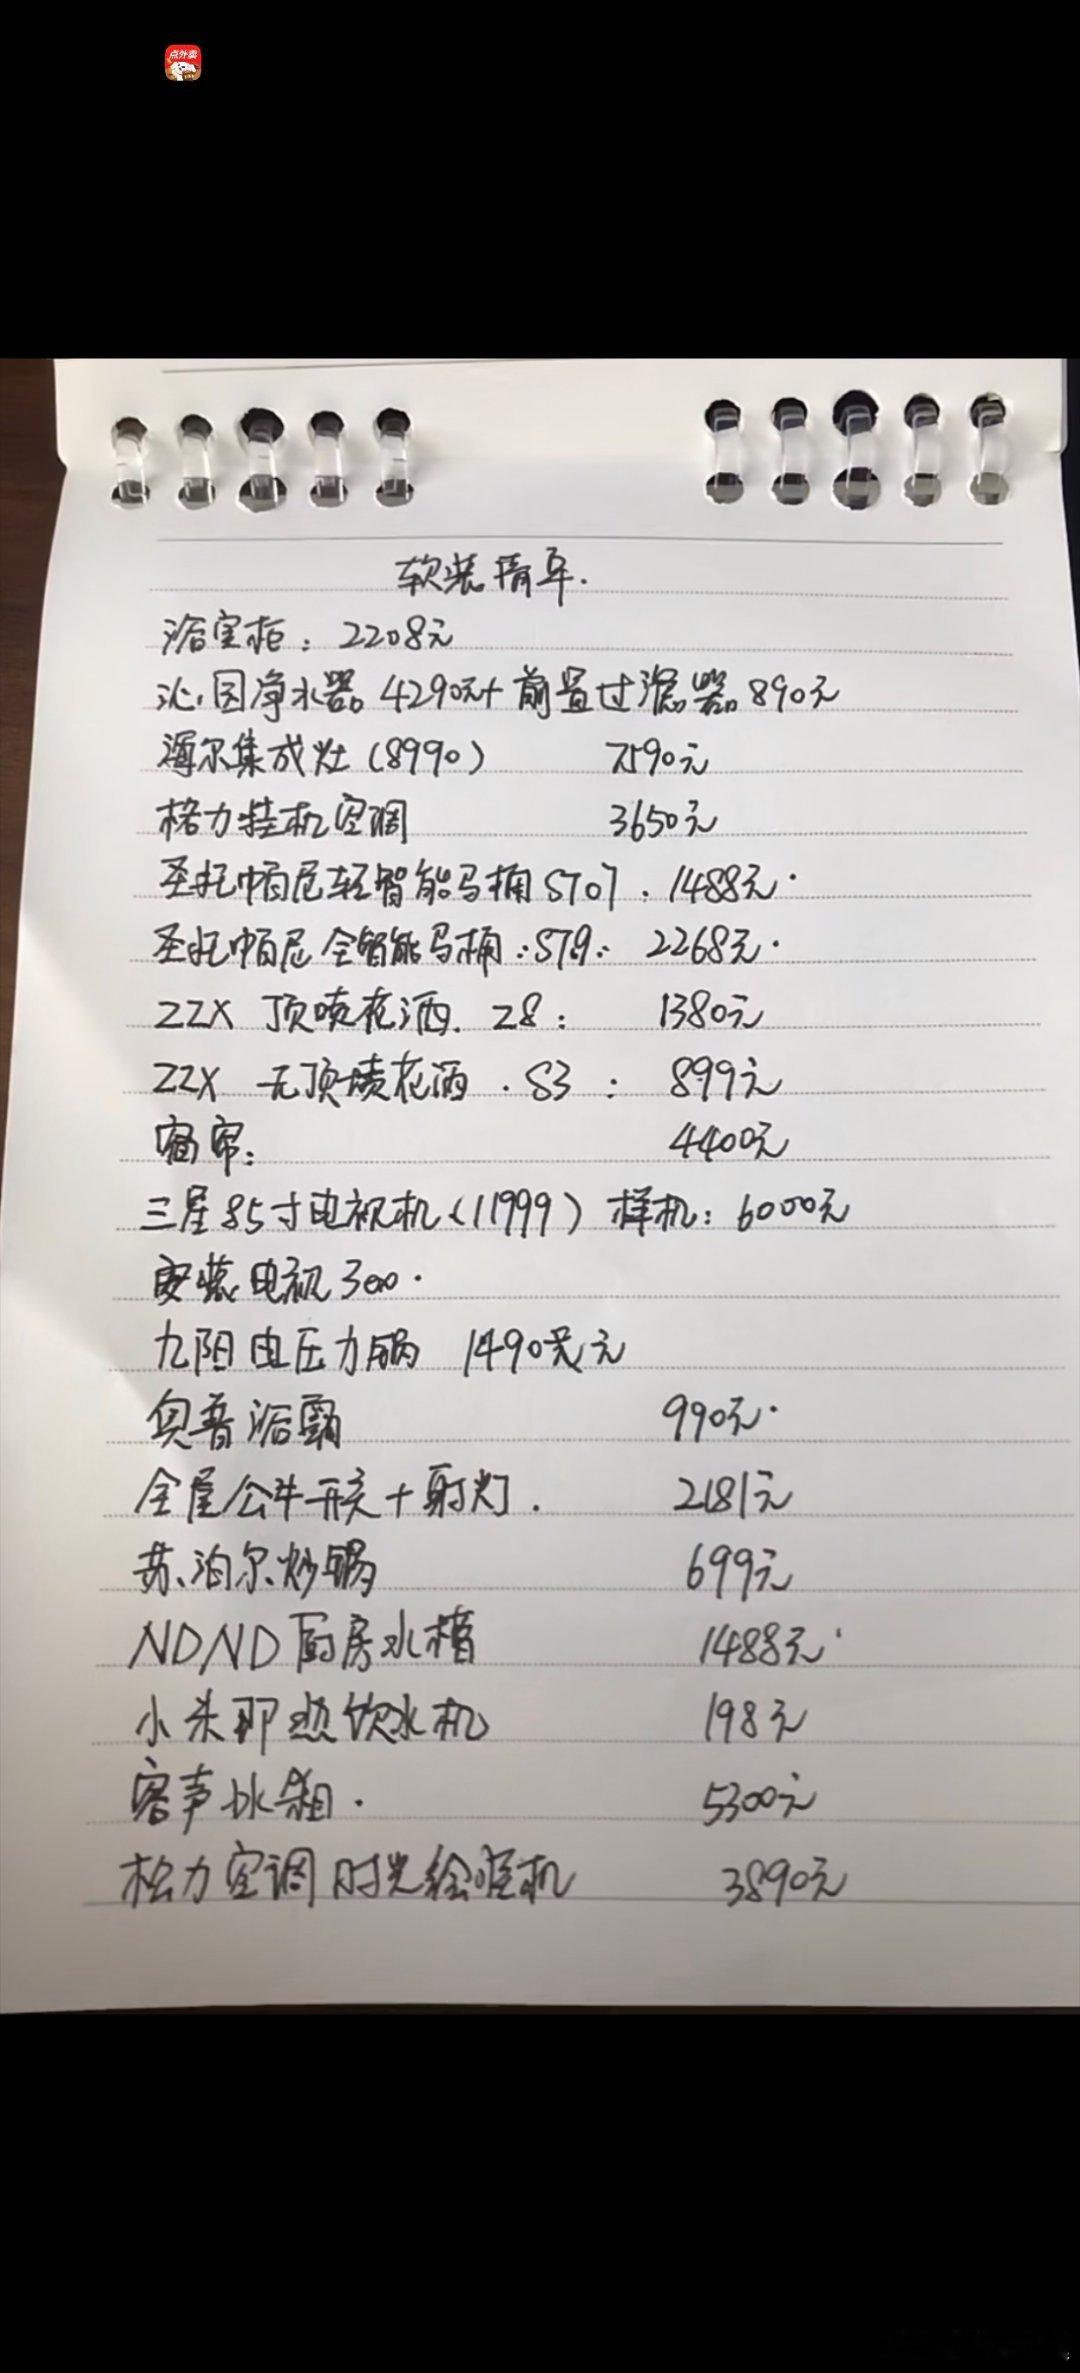 点外卖
软装清单.
浴室柜：2208元
沁园净水器 4290元+前置过滤器 890元
海尔集成灶（8990） 7590元
格力挂机空调 3650元
圣托帕尼轻智能马桶 S707：1488元.
圣托帕尼全智能马桶：S79：2268元.
ZZX 顶喷花洒. Z8： 1380元
ZZX 无顶喷花洒. S3： 899元
窗帘： 4400元
三星85寸电视机（11999）样机：6000元
安装电视300.
九阳电压力锅 1490元
奥普浴霸 990元.
全屋公牛开关+射灯. 2181元
苏泊尔炒锅 699元
NDND厨房水槽 1488元.
小米即热饮水机 198元
容声冰箱. 5300元
格力空调 时光绘 3890元